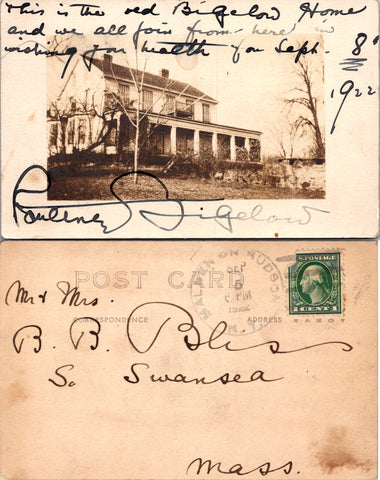 This is the old Bigelow Home
and we all join from here in
wishing you health for Sept. 8"
1922
Poultney Bigelow
POST CARD
CORRESPONDENCE
ADDRESS
MALDEN ON HUDSON
SEP
5
PM
1922
N.Y.
U.S. POSTAGE
1 CENT 1
Mr & Mrs.
B. B. Bliss
So. Swansea
Mass.